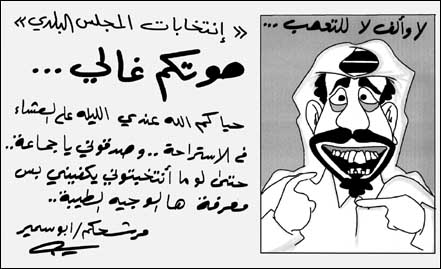 لا وألف لا للتعصب ...
« إنتخابات المجلس البلدي »
صوتكم غالي ...
حياكم الله عندي الليله على العشاء
في الاستراحة .. وصدقوني يا جماعة ..
حتى لو ما أنتخبتوني يكفيني بس
معرفة ها الوجيه الطيبة ..
مرشحكم / ابو سمير